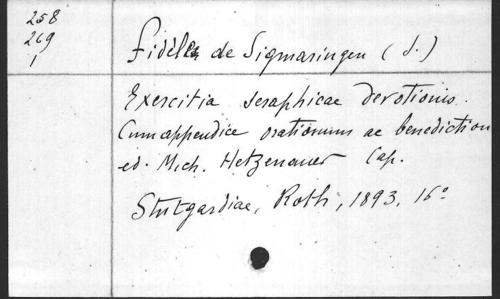 258
269
1
Fidèle de Sigmaringen (S.)
Exercitia seraphicae devotionis.
Cum appendice orationum ac benediction
ed. Mich. Hetzenauer Cap.
Stutgardiae, Roth, 1893. 16°